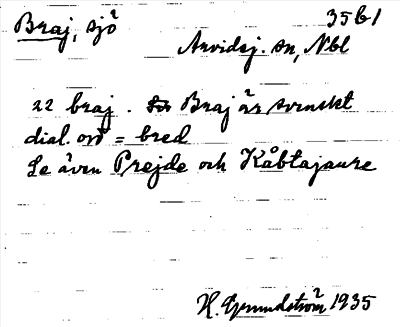 Braj, sjö 35b1
Arvidsj. sn, Nbl
22 braj. Braj är svenskt
dial. ord = bred
Se även Prejde och Kåbtajaure
H. Grundström 1935